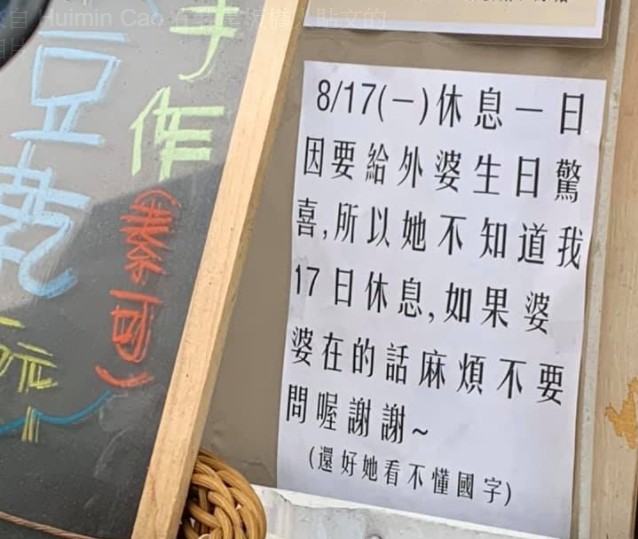 Huimin Cao
手
作
豆
乾
(素可)
元
8/17(一)休息一日
因要給外婆生日驚
喜,所以她不知道我
17日休息,如果婆
婆在的話麻煩不要
問喔謝謝~
(還好她看不懂國字)